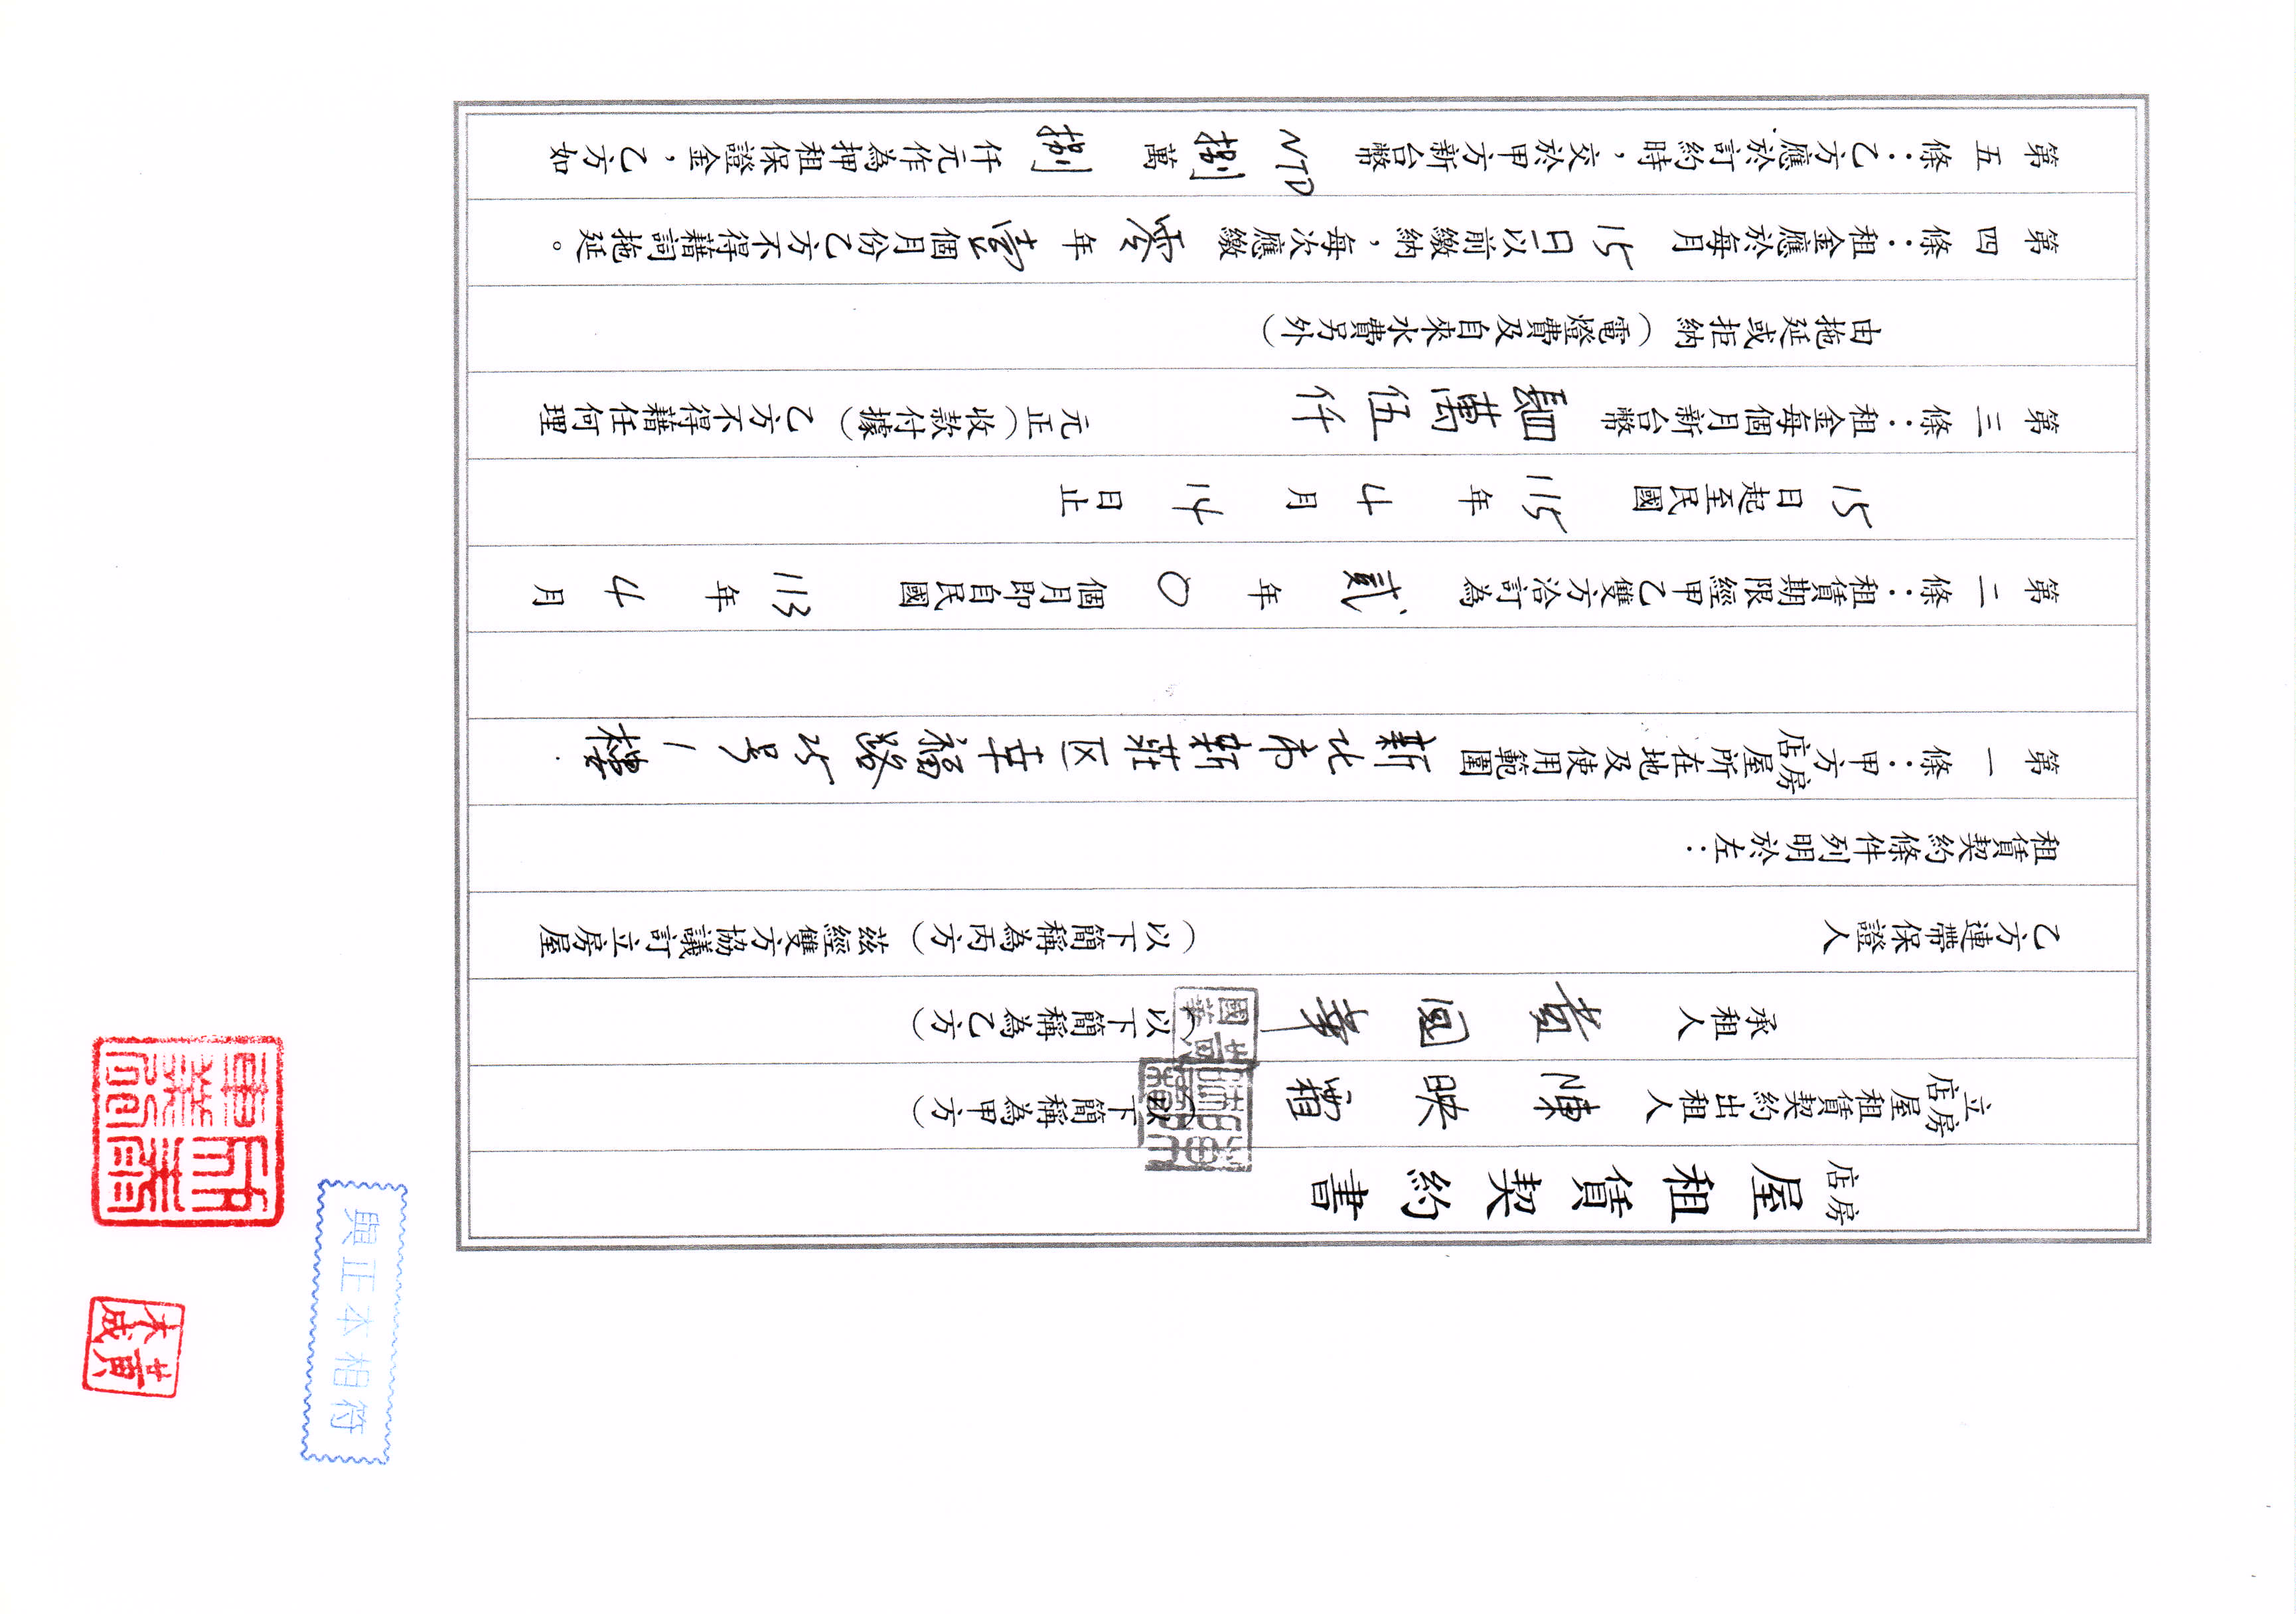 房店屋租賃契約書
立房店屋租賃契約出租人 陳映霜 (以下簡稱為甲方)
承租人 黃國華 (以下簡稱為乙方)
乙方連帶保證人 (以下簡稱為丙方) 茲經雙方協議訂立房屋
租賃契約條件列明於左:
第一條:甲方房店屋所在地及使用範圍 新北市新莊区幸福路25号1樓.
第二條:租賃期限經甲乙雙方洽訂為 貳 年 0 個月即自民國 113 年 4 月
15 日起至民國 115 年 4 月 14 日止
第三條:租金每個月新台幣 肆萬伍仟 元正(收款付據)乙方不得藉任何理
由拖延或拒納(電燈費及自來水費另外)
第四條:租金應於每月 15日以前繳納,每次應繳 零 年 壹 個月份乙方不得藉詞拖延。
第五條:乙方應於訂約時,交於甲方新台幣 NTD 捌 萬 捌 仟元作為押租保證金,乙方如
黃國華
與正本相符